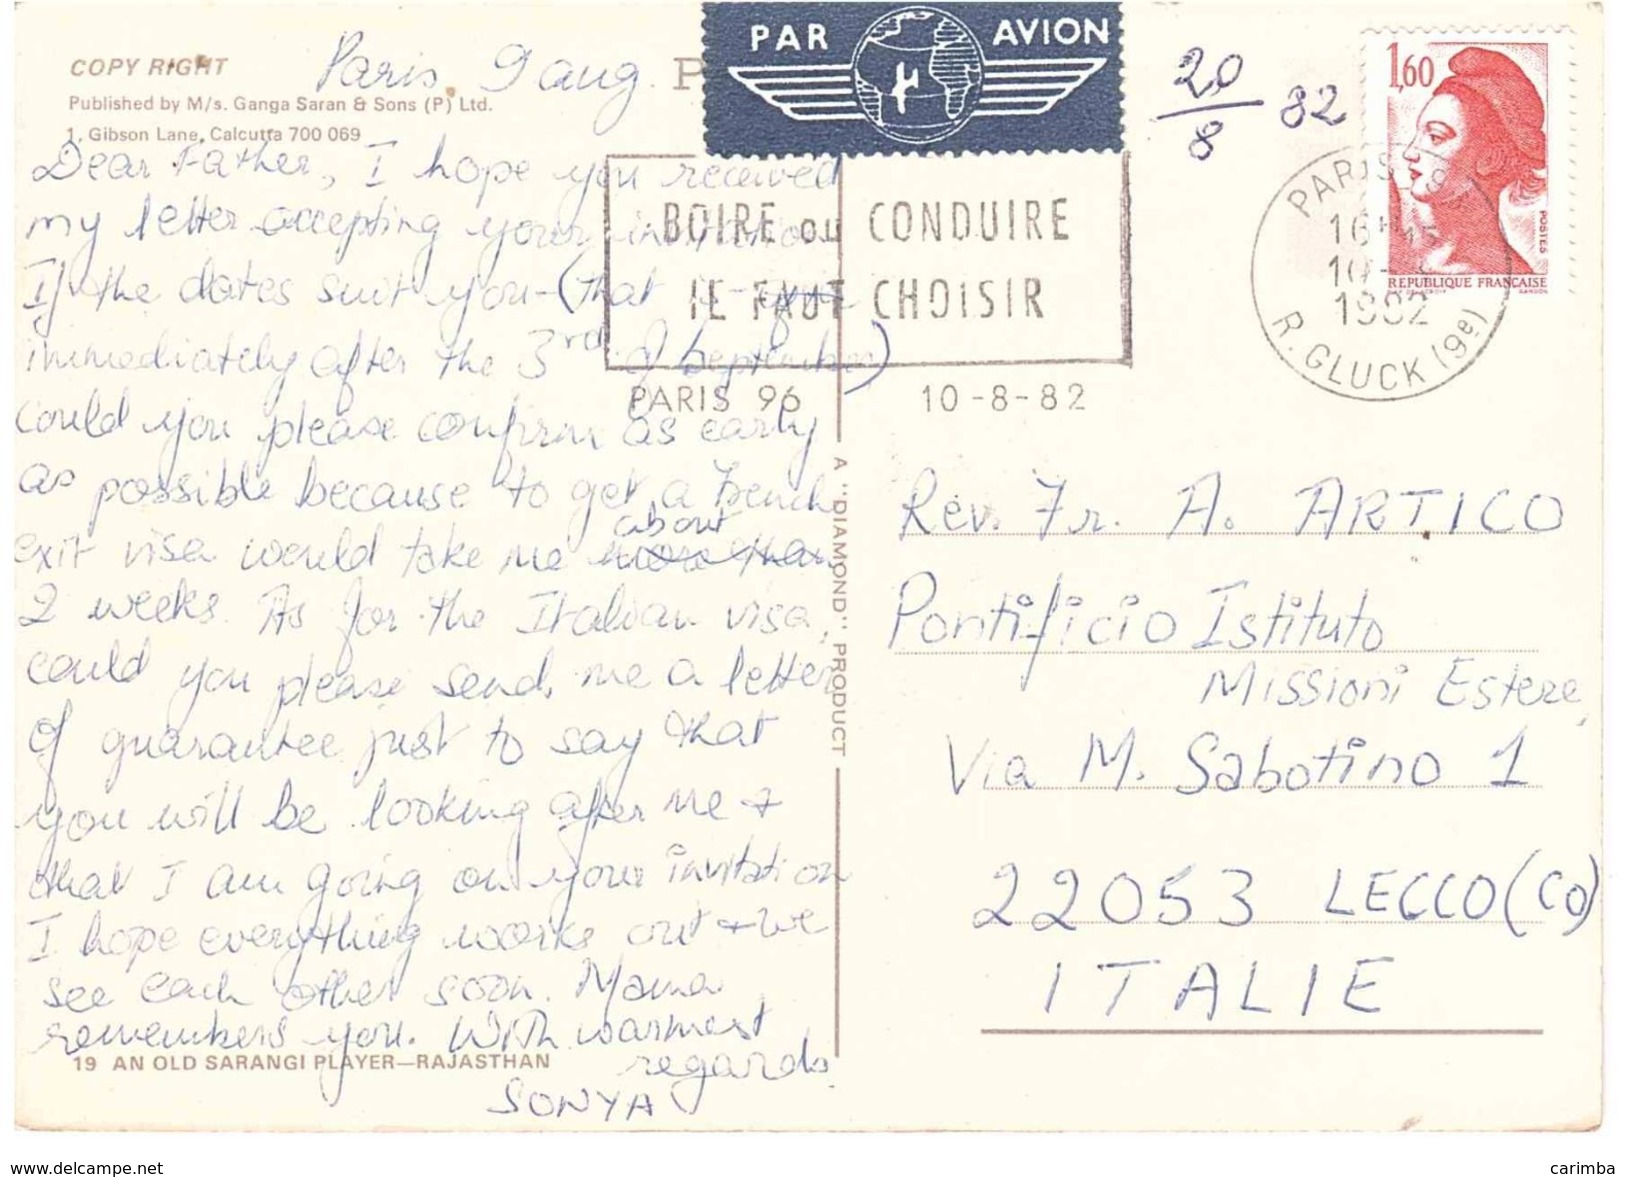 COPY RIGHT
Published by M/s. Ganga Saran & Sons (P) Ltd.
1, Gibson Lane, Calcutta 700 069
Paris, 9 aug.
Dear Father, I hope you received
my letter accepting your invitation
If the dates suit you - (that is
immediately after the 3rd of September)
could you please confirm as early
as possible because to get a French
exit visa would take me more than about
2 weeks. As for the Italian visa,
could you please send me a letter
of guarantee just to say that
you will be looking after me +
that I am going on your invitation
I hope everything works out + we
see each other soon. Mama
remembers you. With warmest
regards
SONYA
19 AN OLD SARANGI PLAYER—RAJASTHAN
A "DIAMOND" PRODUCT
PAR AVION
20/8 82
1,60
POSTES
REPUBLIQUE FRANÇAISE
GANDON
BOIRE OU CONDUIRE
IL FAUT CHOISIR
PARIS 96 10-8-82
PARIS
16H15
10-8
1982
R. GLUCK (9e)
Rev. Fr. A. ARTICO
Pontificio Istituto
Missioni Estere,
Via M. Sabotino 1
22053 LECCO (CO)
ITALIE
www.delcampe.net
carimba